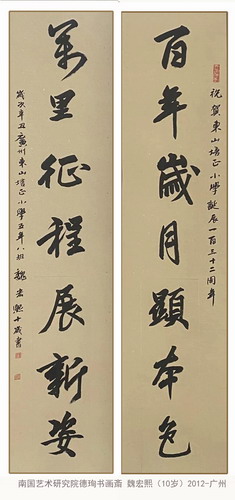 祝贺東山培正小學誕辰一百三十二周年
百年歲月顯本色
萬里征程展新姿
歲次辛丑廣州東山培正小學五年八班 魏宏熙十歲書
南国艺术研究院德珣书画斋 魏宏熙（10岁）2012-广州